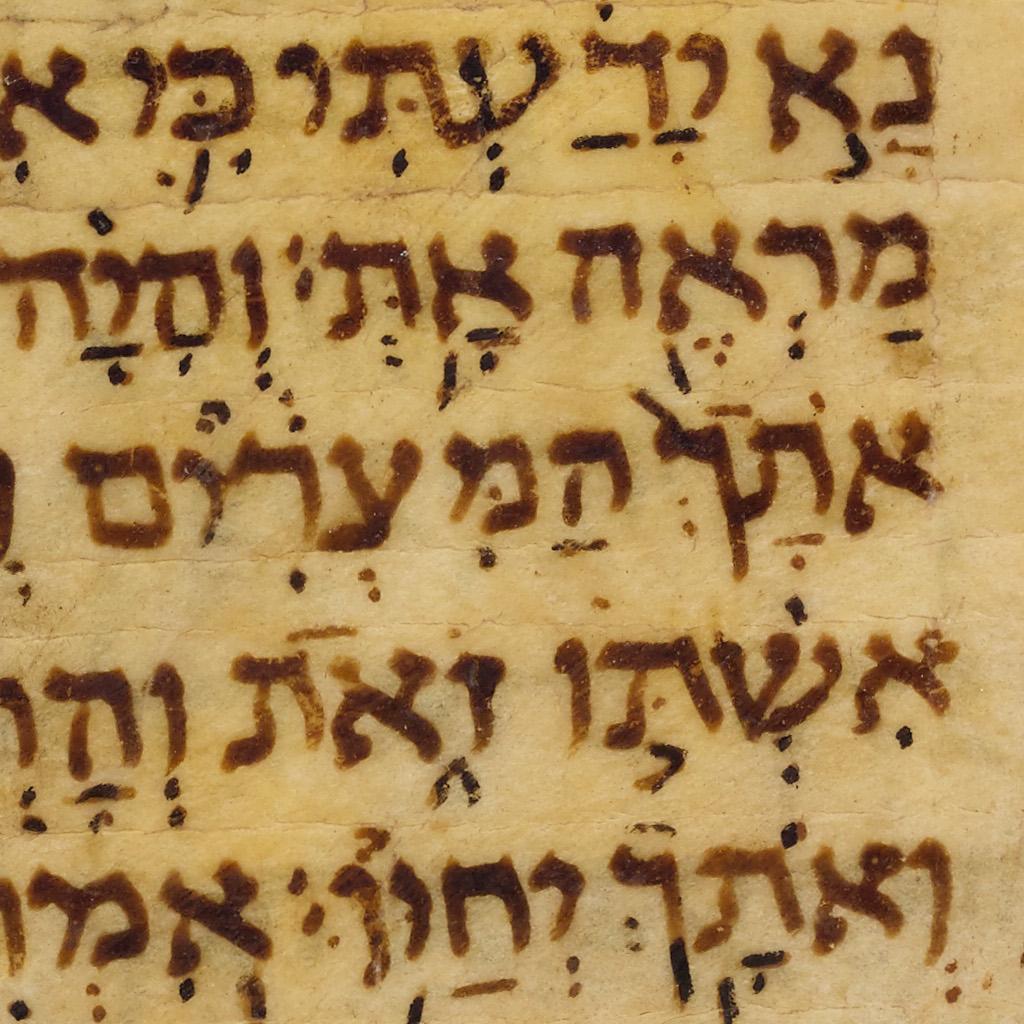 נָא יָדַעְתִּי כִּי א
מַרְאֶה אָתְּ׃ וְהָיָה
אֹתַךְ הַמִּצְרִים
אִשְׁתּוֹ זֹאת וְהָ
וְאֹתָךְ יְחַיּוּ׃ אִמְ